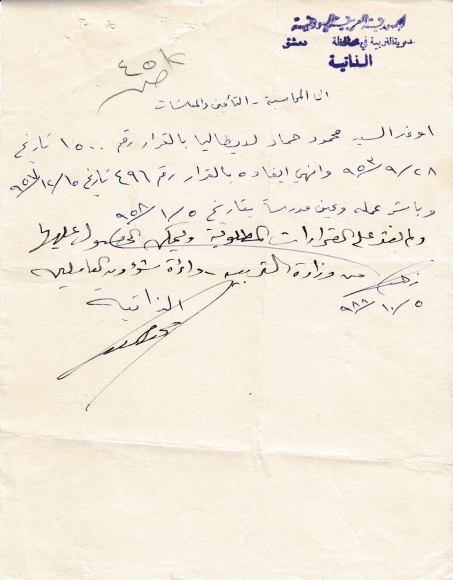 الجمهورية العربية السورية
مديرية التربية في محافظة دمشق
الذاتية
الى المحاسبة - التأمين والمعاشات
اوفد السيد محمود حماد لايطاليا بالقرار رقم ١٥٠٠ تاريخ
٩٥٣/٩/٢٨ وانهي ايفاده بالقرار رقم ٤٩٦ تاريخ ٩٥٧/١٢/١٥
وباشر عمله وعين مدرسا بتاريخ ٩٥٨/١/٥
ولم نعثر على القرارات المطلوبة ويمكن الحصول عليها
من وزارة التربية - دائرة شؤون العاملين
٩٨٨/١٠/٥
الذاتية